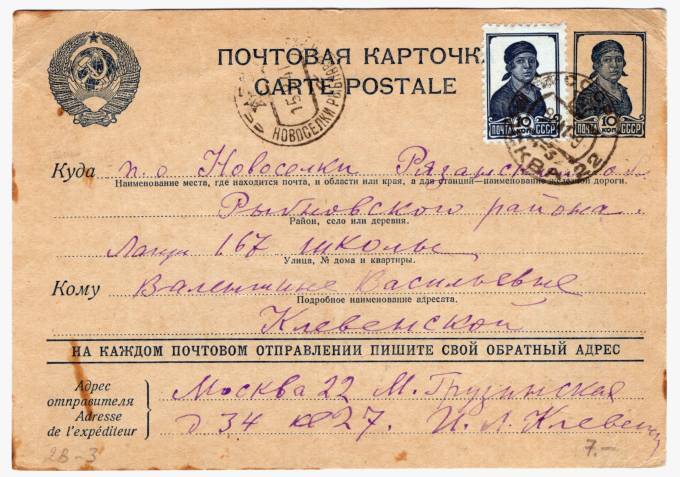 ПОЧТОВАЯ КАРТОЧК
CARTE POSTALE
ПОЧТА 10 КОП. СССР
ПОЧТА 10 КОП. СССР
НОВОСЕЛКИ РЯЗАН
Куда п.о Новоселки Рязанской
Наименование места, где находится почта, и области или края, а для станций—наименование железной дороги.
Рыбновского района
Район, село или деревня.
Лагерь 167 школы
Улица, № дома и квартиры.
Кому Валентине Васильевне
Подробное наименование адресата.
Клевенской
НА КАЖДОМ ПОЧТОВОМ ОТПРАВЛЕНИИ ПИШИТЕ СВОЙ ОБРАТНЫЙ АДРЕС
Адрес отправителя
Adresse de l'expéditeur
Москва 22 М. Грузинская
д 34 кв 27. И. Л. Клевенск
2В-3
7.—